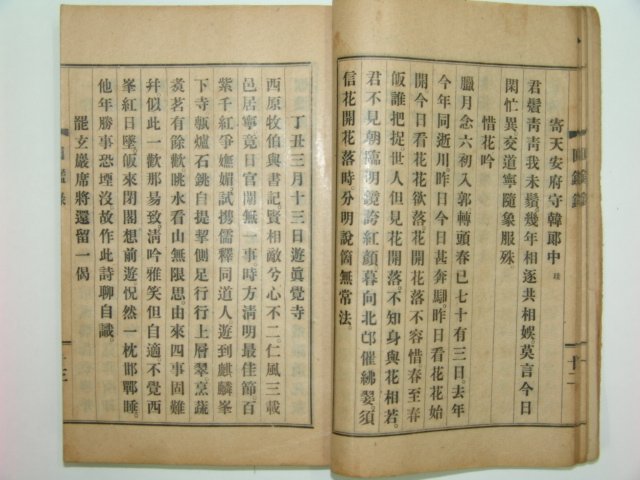 寄天安府守韓郞中
君鬢靑靑我未鬚幾年相逐共相娛。莫言今日
閑忙異交道寧隨象服殊。
惜花吟
臘月念六初入郭轉頭春已七十有三日。去年
今年同逝川。昨日今日甚奔駟。昨日看花花始
開今日看花花欲落花開花落不容惜春至春
皈誰把捉世人但見花開落。不知身與花相若。
君不見朝臨明鏡誇紅顔暮向北邙催紼翣。須
信花開花落時。分明說箇無常法。
十二
丁丑三月十三日遊眞覺寺
西原牧伯與書記賢相敵兮心不二。仁風三載
邑居寧竟日官閑無一事時方淸明最佳節。百
紫千紅爭嫵媚。試携儒釋同道人遊到麒麟峯
下寺。甎爐石銚自提挈側足行行上層翠烹蔬
煑茗有餘歡眺水看山無限思。由來四事固難
幷似此一歡那易致。淸吟雅笑但自適不覺西
峯紅日墜。皈來閉閣想前遊怳然一枕邯鄲睡。
他年勝事恐堙沒故作此詩聊自識。
罷玄巖席將還留一偈